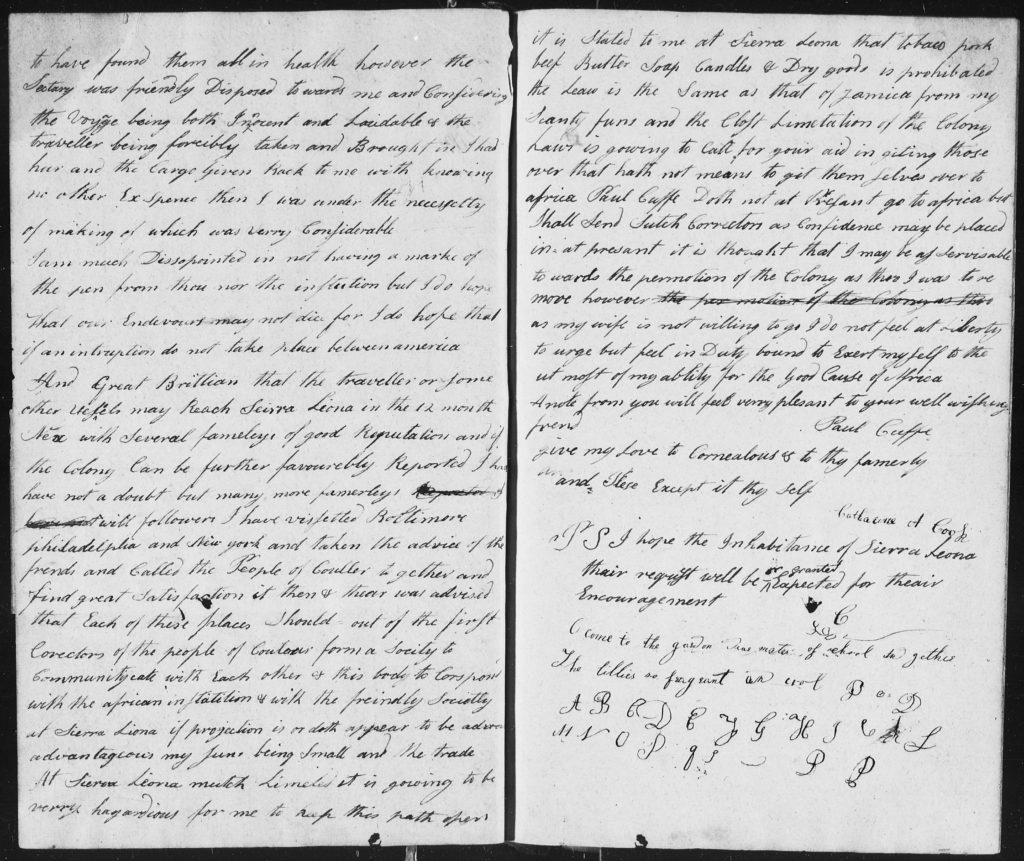 to have found them all in health however the
Seatary was friendly Disposed to wards me and Considering
the Voyge being both Inocent and Laudable & the
traveller being forcibly taken and Brought in I had
hur and the Cargo Given back to me with knowing
no other Exspence then I was under the necesetty
of making of which was verry Considerable
I am much Dissopointed in not having a marke of
the pen from thou nor the instution but I do hope
that our Endevours may not die for I do hope that
if an intruption do not take place between america
And Great Brittian that the traveller or some
other vessels may Reach Seirra Leona in the 12 month
Nex with Several fameleys of good Reputation and if
the Colony Can be further favourebly Reported I
have not a doubt but many more famerleys
will followers I have vissetted Boltimore
philadelphia and New york and taken the advice of the
frends and Called the People of Couller to gether and
find great Satisfaction it then & thear was advised
that Each of these places Should out of the first
Corectors of the people of Coulour form a Socity to
Communitycate with Each other & this body to Corspond
with the african institition & with the freindly Sociolly
at Sierra Liona if projection is or doth appear to be
advantagious my funs being Small and the trade
At Sierra Leona mutch Limeted it is gowing to be
verry hazardious for me to keep this path open
it is Stated to me at Sierra Leona that tobaco pork
beef Butter Soap Candles & Dry goods is prohibated
the Leaw is the Same as that of Jamica from my
Scanty funs and the Closs Limetation of the Colony
Laws is gowing to Call for your aid in giting those
over that hath not means to git them selves over to
africa Paul Cuffe Doth not at Presant go to africa but
Shall Send Sutch Correctors as Confidence may be placed
in at presant it is thought that I may be as Servisable
to wards the permotion of the Colony as thou I was to re
move however the per motion of the Colony as tho
as my wife is not willing to go I do not feel at Liberty
to urge but feel in Duty bound to Exert my self to the
ut most of my ablity for the Good Cause of Africa
A note from you will feel verry plesant to your well wishing
frend
Paul Cuffe
give my Love to Cornealous & to thy famerly
and Plese Except it thy Self
Catharine A Cook
P S I hope the Inhabitance of Sierra Leona
thair request well be or granted Exapected for theair
Encouragement
C
O come to the garden dear mates of school
The lillies so fragent
P D
A B C D E F G H I L
M N O P q P P